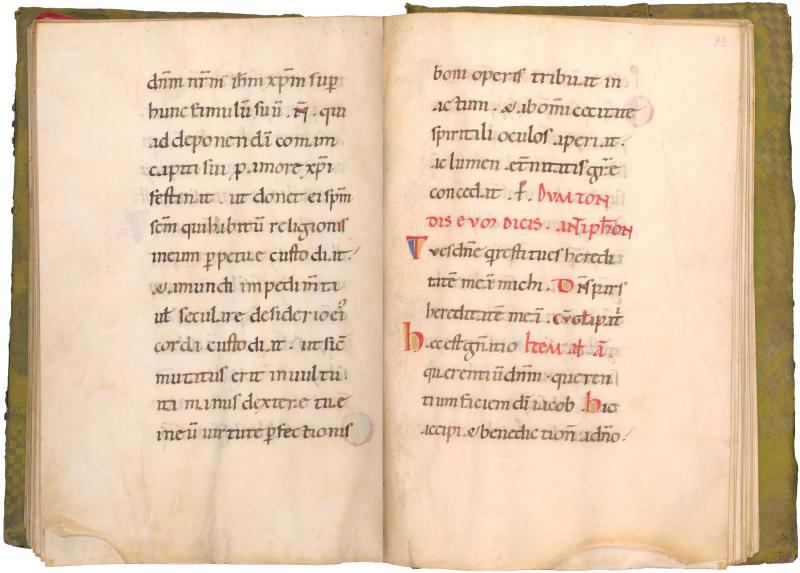 dn̄m nr̄m ih̄m xp̄m sup̱
hunc famulū suū . n̄ . qui
ad deponendā comam
capitis sui p̱ amore xp̄i
festinat . ut donet ei sp̄m
sc̄m qui habitū religionis
in eum p̱petue custodiat .
& a mundi impedim̄to
ut̄ seculare desiderio ei⁹
cor di custodiat . ut sic̄
mutatus erit in uultu .
ita manus dextere tue
in eū uirtute p̱fectionis
93
boni operis tribuat in
actum . & ab om̄i cecitate
spiritali oculos aperiat .
ac lumen et̄nitatis gr̄e
concedat . DVM TON
DIS EVM DICIS . ANTIPHON
Tu es dn̄e q restitues heredi
tatē meā michi . Dn̄s pars
hereditatē meā .
hec est gn̄atio ITEM al̄ ā
querentiū dn̄m . queren
tium faciem dī iacob . hic
accipi & benediction̄ a dn̄o .